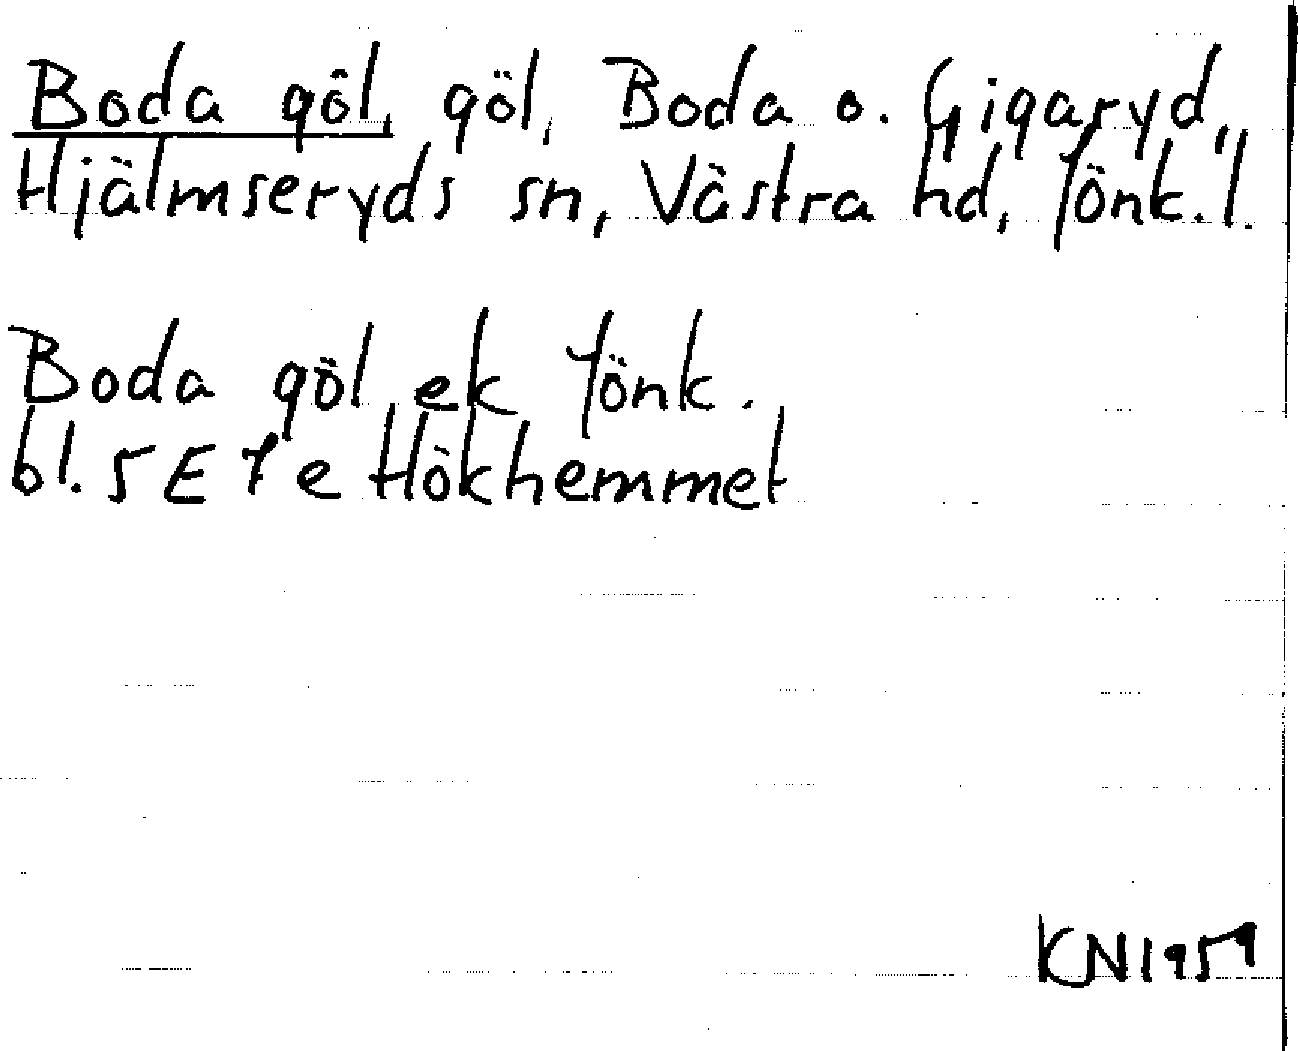 Boda göl, göl, Boda o. Gigaryd,
Hjälmseryds sn, Västra hd, Jönk. l.
Boda göl ek Jönk.
bl. 5 E 7 e Hökhemmet
KN 1959